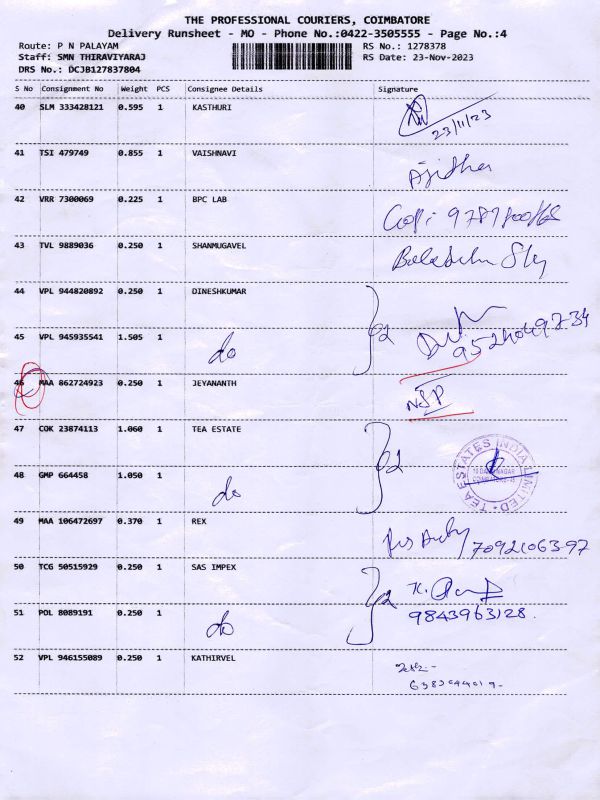 THE PROFESSIONAL COURIERS, COIMBATORE
Delivery Runsheet - MO - Phone No.:0422-3505555 - Page No.:4
Route: P N PALAYAM RS No.: 1278378
Staff: SMN THIRAVIYARAJ RS Date: 23-Nov-2023
DRS No.: DCJB127837804
S No Consignment No Weight PCS Consignee Details Signature
40 SLM 333428121 0.595 1 KASTHURI
23/11/23
41 TSI 479749 0.855 1 VAISHNAVI
42 VRR 7300069 0.225 1 BPC LAB
43 TVL 9889036 0.250 1 SHANMUGAVEL
44 VPL 944820892 0.250 1 DINESHKUMAR
45 VPL 945935541 1.505 1 do 2
46 MAA 862724923 0.250 1 JEYANANTH NSP
47 COK 23874113 1.060 1 TEA ESTATE
TEA ESTATES INDIA LIMITED
48 GMP 664458 1.050 1 do 2
49 MAA 106472697 0.370 1 REX 7092106397
50 TCG 50515929 0.250 1 SAS IMPEX
51 POL 8089191 0.250 1 do 2 9843963128
52 VPL 946155089 0.250 1 KATHIRVEL